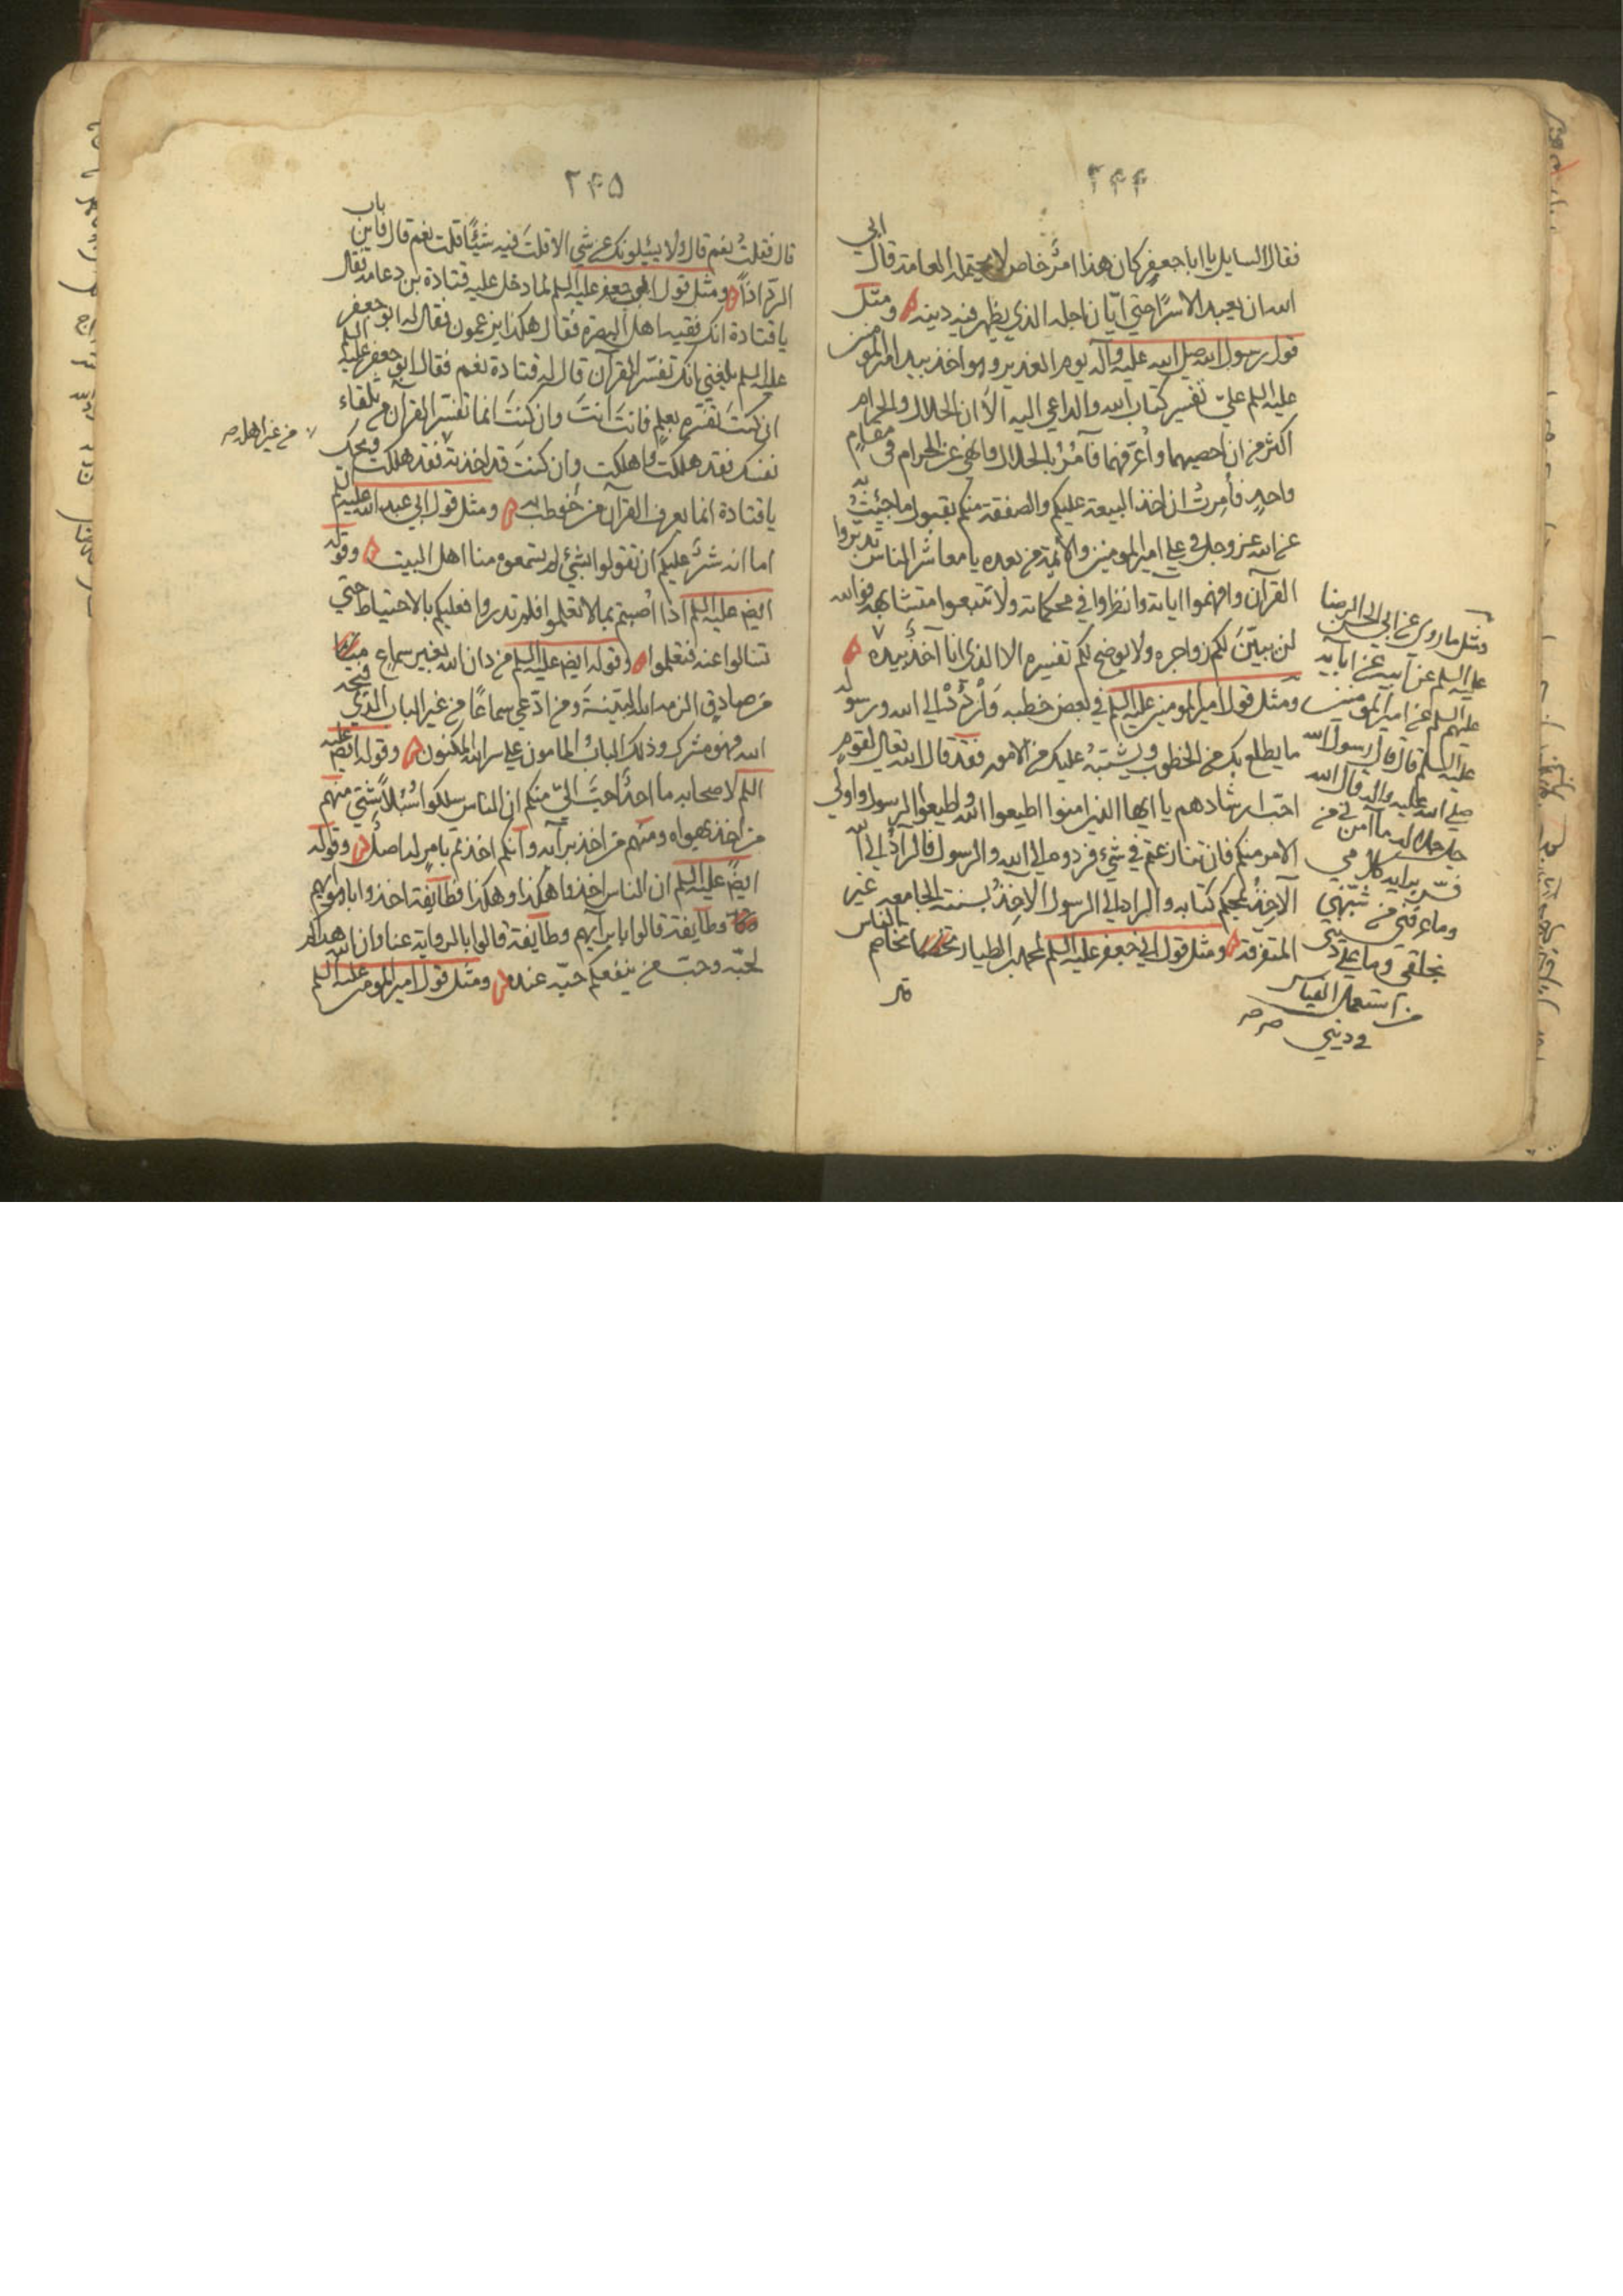 ٢٤٤
فقال السايل يا ابا جعفر كان هذا امر خاص لا يحتمله العامة قال ابي
الله ان يعبد الا سرا حتي ابّان اجله الذي يظهر فيه دينه ومثل
قول رسول الله صلي الله عليه وآله يوم الغدير وهو اخذ بيد امير المومنين
عليه السلم علي تفسير كتاب الله والداعي اليه الا ان الحلال والحرام
اكثر من ان احصيهما واعرّفهما فآمر بالحلال وانهي عن الحرام في مقام
واحد فأمرت ان اخذ البيعة عليكم والصفقة منكم بقبول ما جئت به
عن الله عز وجل في علي امير المومنين والائمة من بعده يا معاشر الناس تدبروا
القرآن وافهموا اياته وانظروا في محكماته ولا تتبعوا متشابهه فوالله
لن يبيّن لكم زواجره ولا يوضح لكم تفسيره الا الذي انا آخذ بيده
ومثل قول امير المومنين عليه السلم في بعض خطبه وَارْدُدْ الي الله ورسوله
ما يطلع بك من الخطوب ويشتبه عليك من الامور فقد قال الله تعالي لقوم
احب ارشادهم يا ايها الذين امنوا اطيعوا الله واطيعوا الرسول واولي
الامر منكم فان تنازعتم في شيء فردوه الي الله والرسول فالرآدّ الي الله
الآخذ بمحكم كتابه والراد الي الرسول الآخذ بسنته الجامعه غير
المتفرقه ومثل قول ابي جعفر عليه السلم لمحمد الطيار تخاصم الناس
ومثل ما روي عن ابي الحسن الرضا
عليه السلم عن ابيه عن ابايه
عليهم السلم عن امير المومنين
عليه السلم قال قال رسول الله
صلي الله عليه واله قال الله
جل جلاله ما آمن بي من
فسّر برايه كلامي
وما عرفني من شبّهني
بخلقي وما علي ديني
من استعمل القياس
في ديني
٢٤٥
قال فقلت نعم قال ولا يسئلونك عن شي الا قلت فيه شيئًا قلت نعم قال فاين باب
الردّ اذًا ومثل قول ابي جعفر عليه السلم لما دخل عليه قتادة بن دعامة فقال
يا قتادة انك فقيه اهل البصرة فقال هكذا يزعمون فقال له ابو جعفر
عليه السلم بلغني انك تفسّر القرآن قال له قتادة نعم فقال ابو جعفر عليه السلم
ان كنت تفسّره بعلم فانت انت وان كنت انما تفسّر القرآن من تلقاء
نفسك فقد هلكت واهلكت وان كنت قد اخذته فقد هلكت ويحك
من غير اهله صح
يا قتادة انما يعرف القرآن من خوطب به ومثل قول ابي عبد الله عليه السلم
اما انه شرّ عليكم ان تقولوا بشيء لم تسمعوه منا اهل البيت وقوله
ايض عليه السلم اذا اُصبتم بما لا تعلموا فلم تدروا فعليكم بالاحتياط حتي
تسالوا عنه فتعلموا وقوله ايض عليه السلم من دان الله بغير سماع
من صادق الزمه الله البتة ومن ادّعي سماعًا من غير الباب الذي فتحه
الله فهو مشرك وذلك الباب المامون علي سر الله المكنون وقوله ايض عليه
السلم لاصحابه ما احدٌ احبّ اليّ منكم ان الناس سلكوا سُبُلًا شتي منهم
من اخذ بهواه ومنهم من اخذ برآيه وانكم اخذتم بامر له اصل وقوله
ايضً عليه السلم ان الناس اخذوا هكذا وهكذا فطآيفة اخذوا باهوآيهم
وطآيفة قالوا بارآيهم وطآيفة قالوا بالرواية عنا وان الله هداكم
لحبّه وحبّ من ينفعكم حبّه عنده ومثل قول امير المومنين عليه السلم